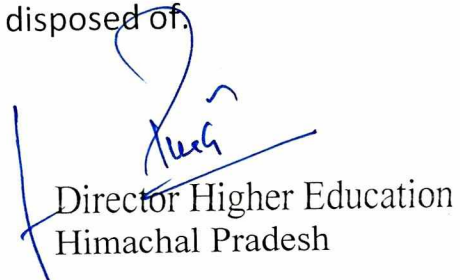 disposed of.
Director Higher Education
Himachal Pradesh